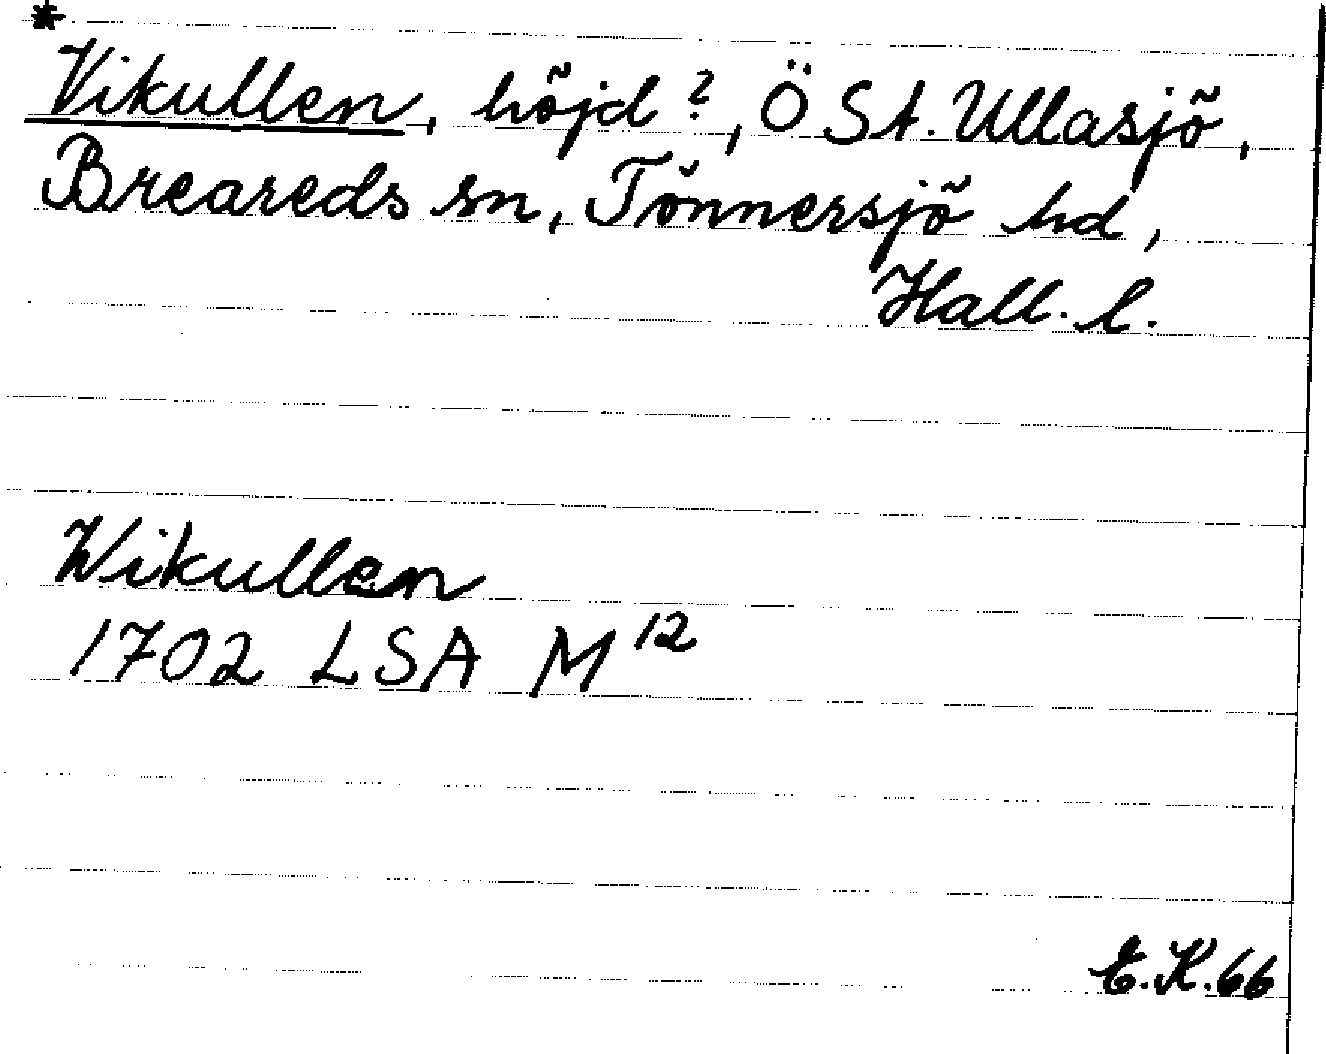 *
Vikullen, höjd?, Ö St. Ullasjö,
Breareds sn, Tönnersjö hd,
Hall. l.
Wikullen
1702 LSA M 12
E.K.66